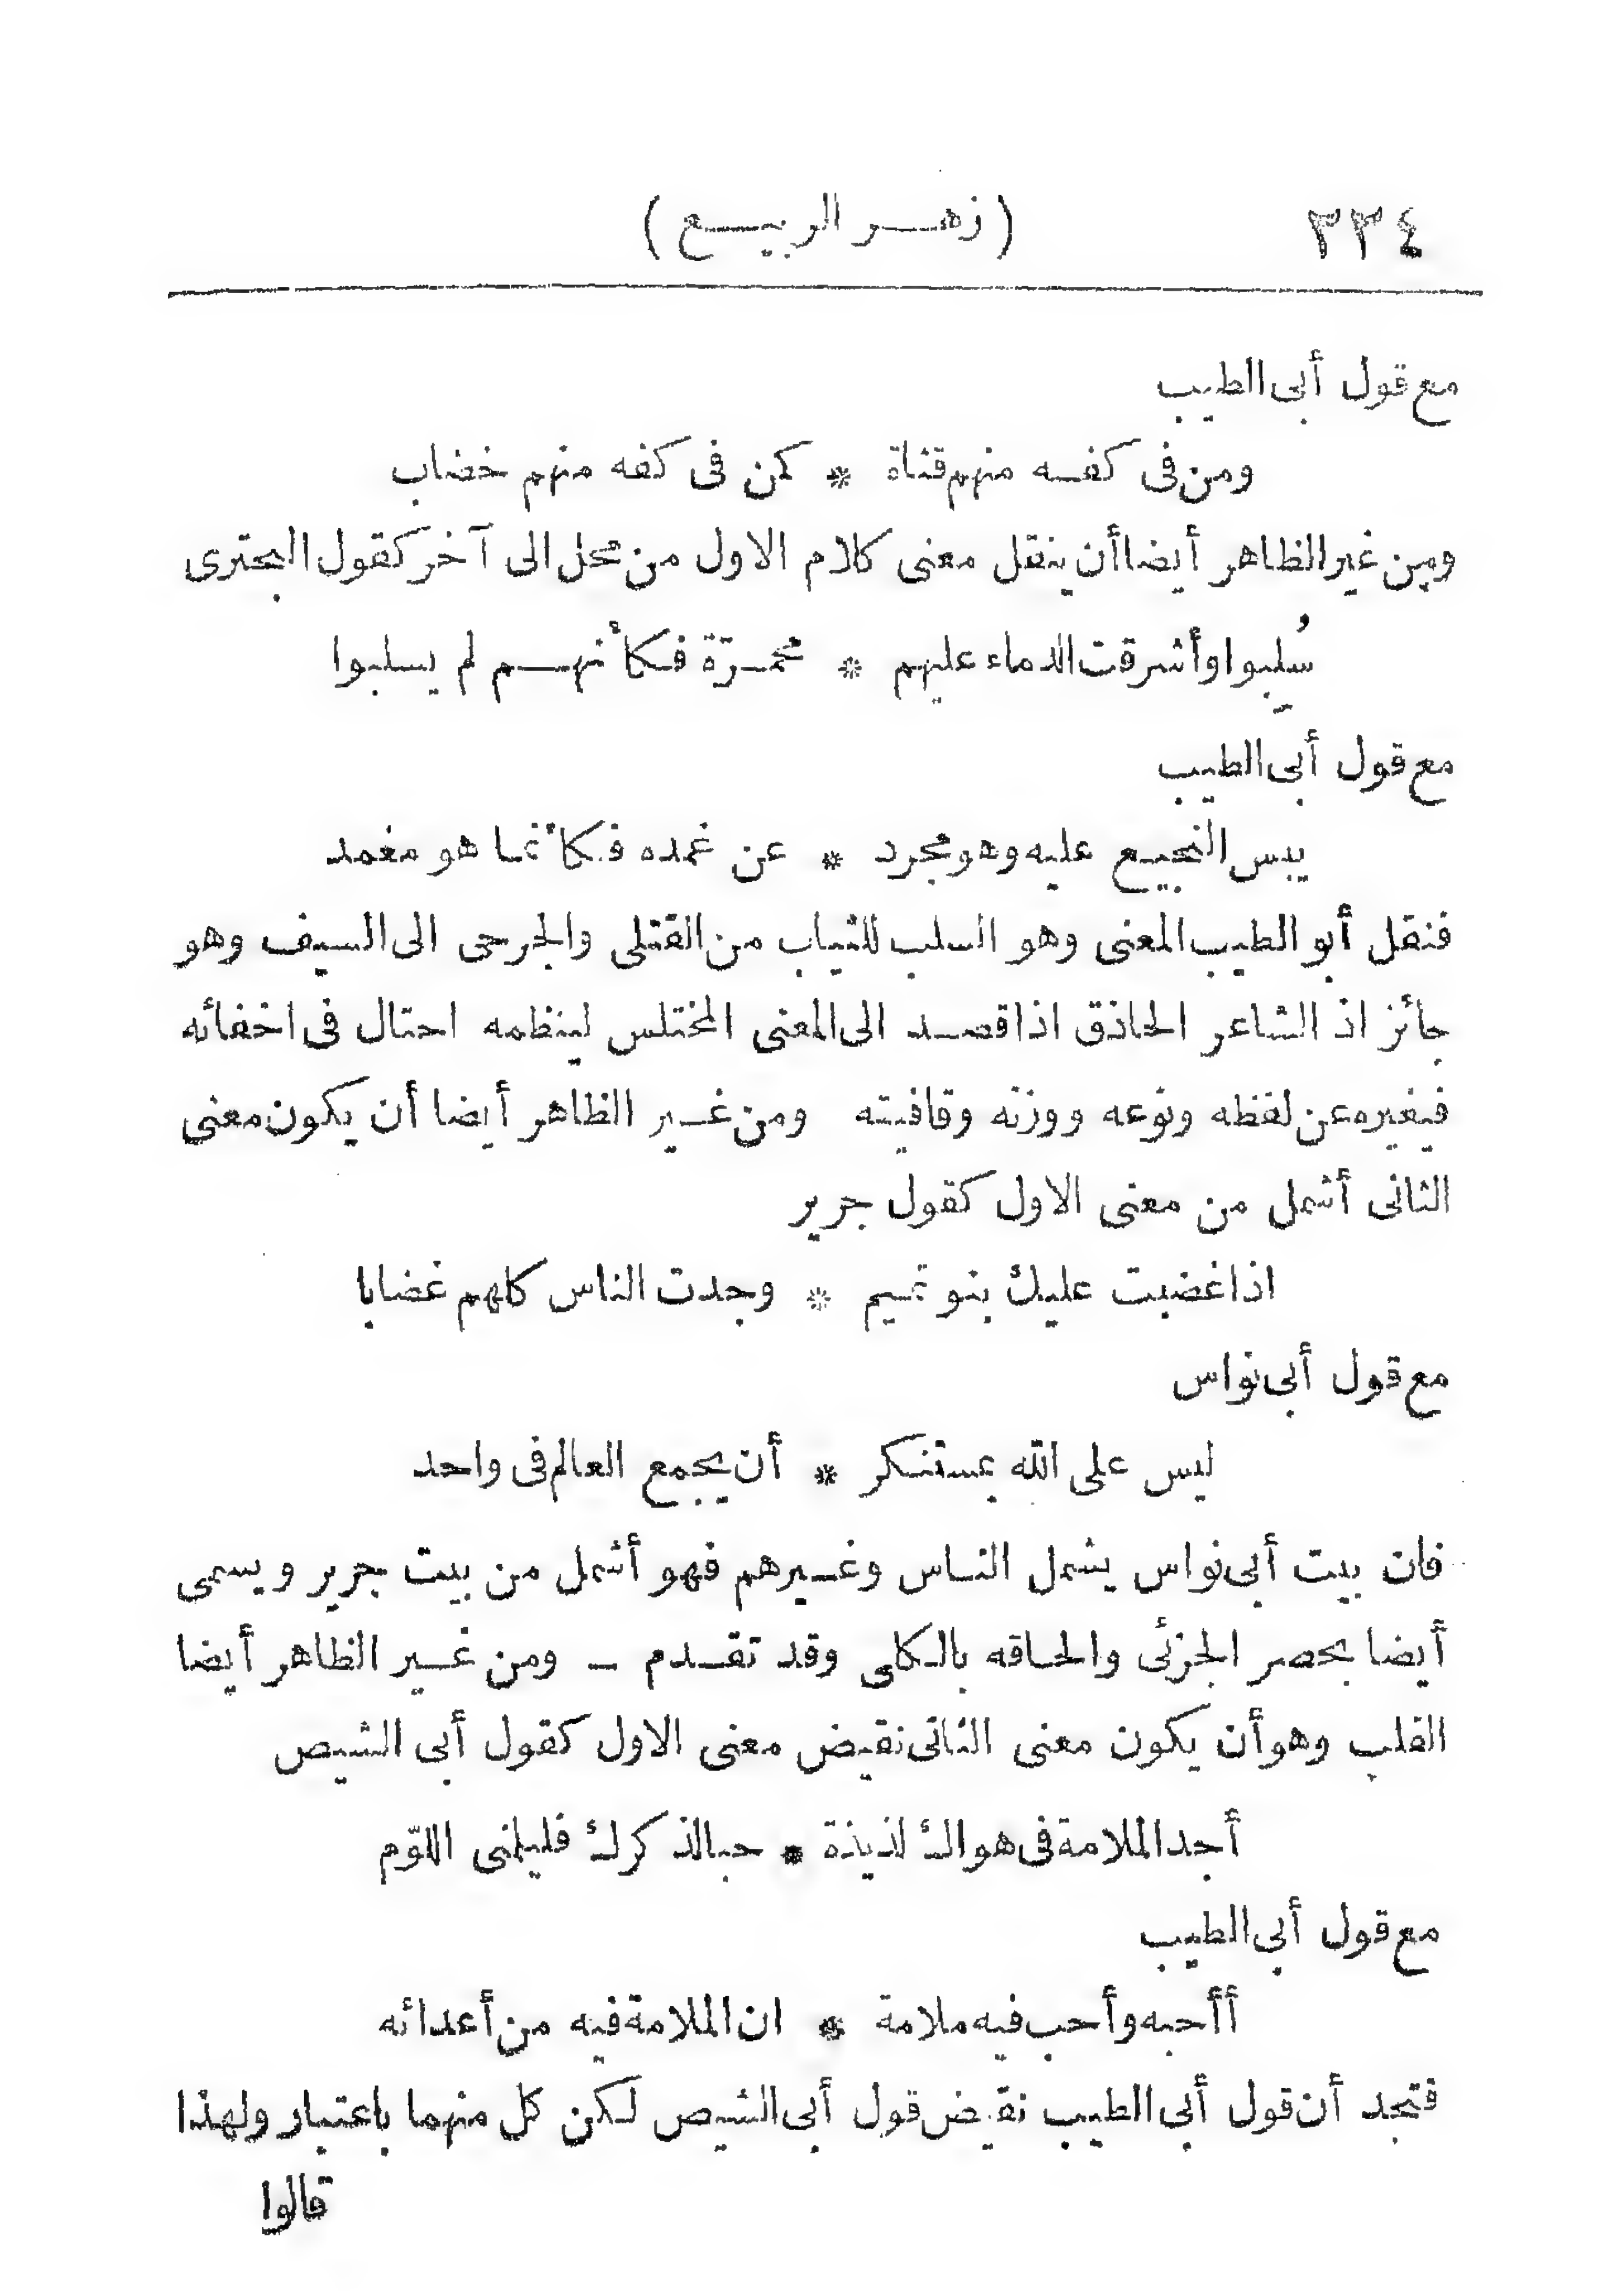 ٢٣٤ (زهر الربيع)
مع قول أبى الطيب
ومن فى كفه منهم قناة * كمن فى كفه منهم خضاب
ومن غير الظاهر أيضا أن ينقل معنى كلام الاول من محل الى آخر كقول البحترى
سُلِبوا وأشرقت الدماء عليهم * محمرّة فكأنهم لم يسلبوا
مع قول أبى الطيب
يبس النجيع عليه وهو مجرد * عن غمده فكأنما هو مغمد
فنقل أبو الطيب المعنى وهو السلب للثياب من القتلى والجرحى الى السيف وهو
جائز اذ الشاعر الحاذق اذا قصد الى المعنى المختلس لينظمه احتال فى اخفائه
فيغيره عن لفظه ونوعه ووزنه وقافيته ومن غير الظاهر أيضا أن يكون معنى
الثانى أشمل من معنى الاول كقول جرير
اذا غضبت عليك بنو تميم * وجدت الناس كلهم غضابا
مع قول أبى نواس
ليس على الله بمستنكر * أن يجمع العالم فى واحد
فان بيت أبى نواس يشمل الناس وغيرهم فهو أشمل من بيت جرير ويسمى
أيضا بحصر الجزئى والحاقه بالكلى وقد تقدم - ومن غير الظاهر أيضا
القلب وهو أن يكون معنى الثانى نقيض معنى الاول كقول أبى الشيص
أجد الملامة فى هواك لذيذة * حبا لذكرك فليلمنى اللوّم
مع قول أبى الطيب
أأحبه وأحب فيه ملامة * ان الملامة فيه من أعدائه
فتجد أن قول أبى الطيب نقيض قول أبى الشيص لكن كل منهما باعتبار ولهذا
قالوا